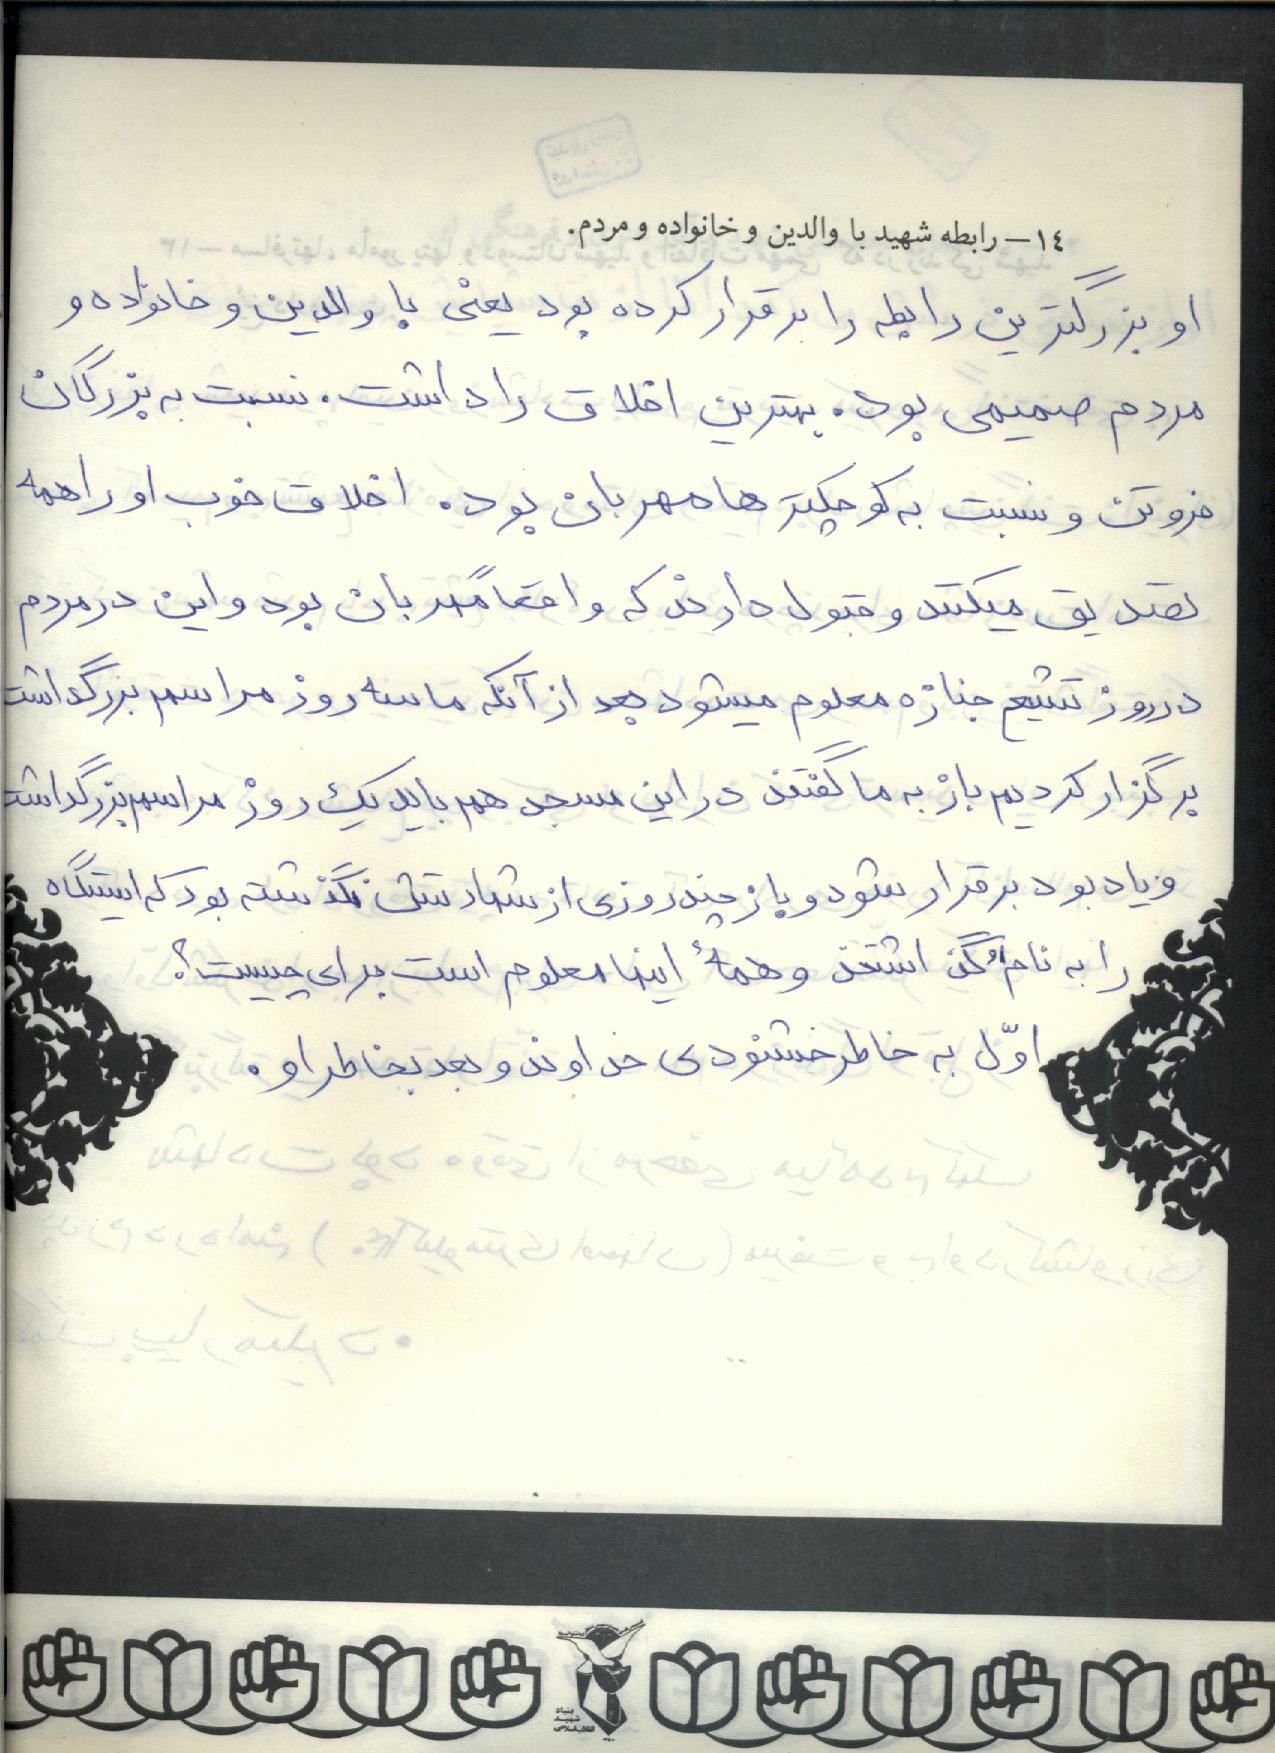 ١٤– رابطه شهید با والدین و خانواده و مردم.
او بزرگترین رابطه را برقرار کرده بود یعنی با والدین و خانواده و
مردم صمیمی بود. بهترین اخلاق را داشت. نسبت به بزرگان
فروتن و نسبت به کوچکترها مهربان بود. اخلاق خوب او را همه
تصدیق میکنند و قبول دارند که واقعاً مهربان بود و این در مردم
در روز تشیع جنازه معلوم میشود بعد از آنکه ما سه روز مراسم بزرگداشت
برگزار کردیم باز به ما گفتند در این مسجد هم باید یک روز مراسم بزرگداشت
و یادبود برقرار شود و باز چند روزی از شهادتش نگذشته بود که ایستگاه
را به نام او گذاشتند و همهٔ اینها معلوم است برای چیست؟
اوّل به خاطر خشنودی خداوند و بعد بخاطر او.
بنیاد
شهید
انقلاب اسلامی